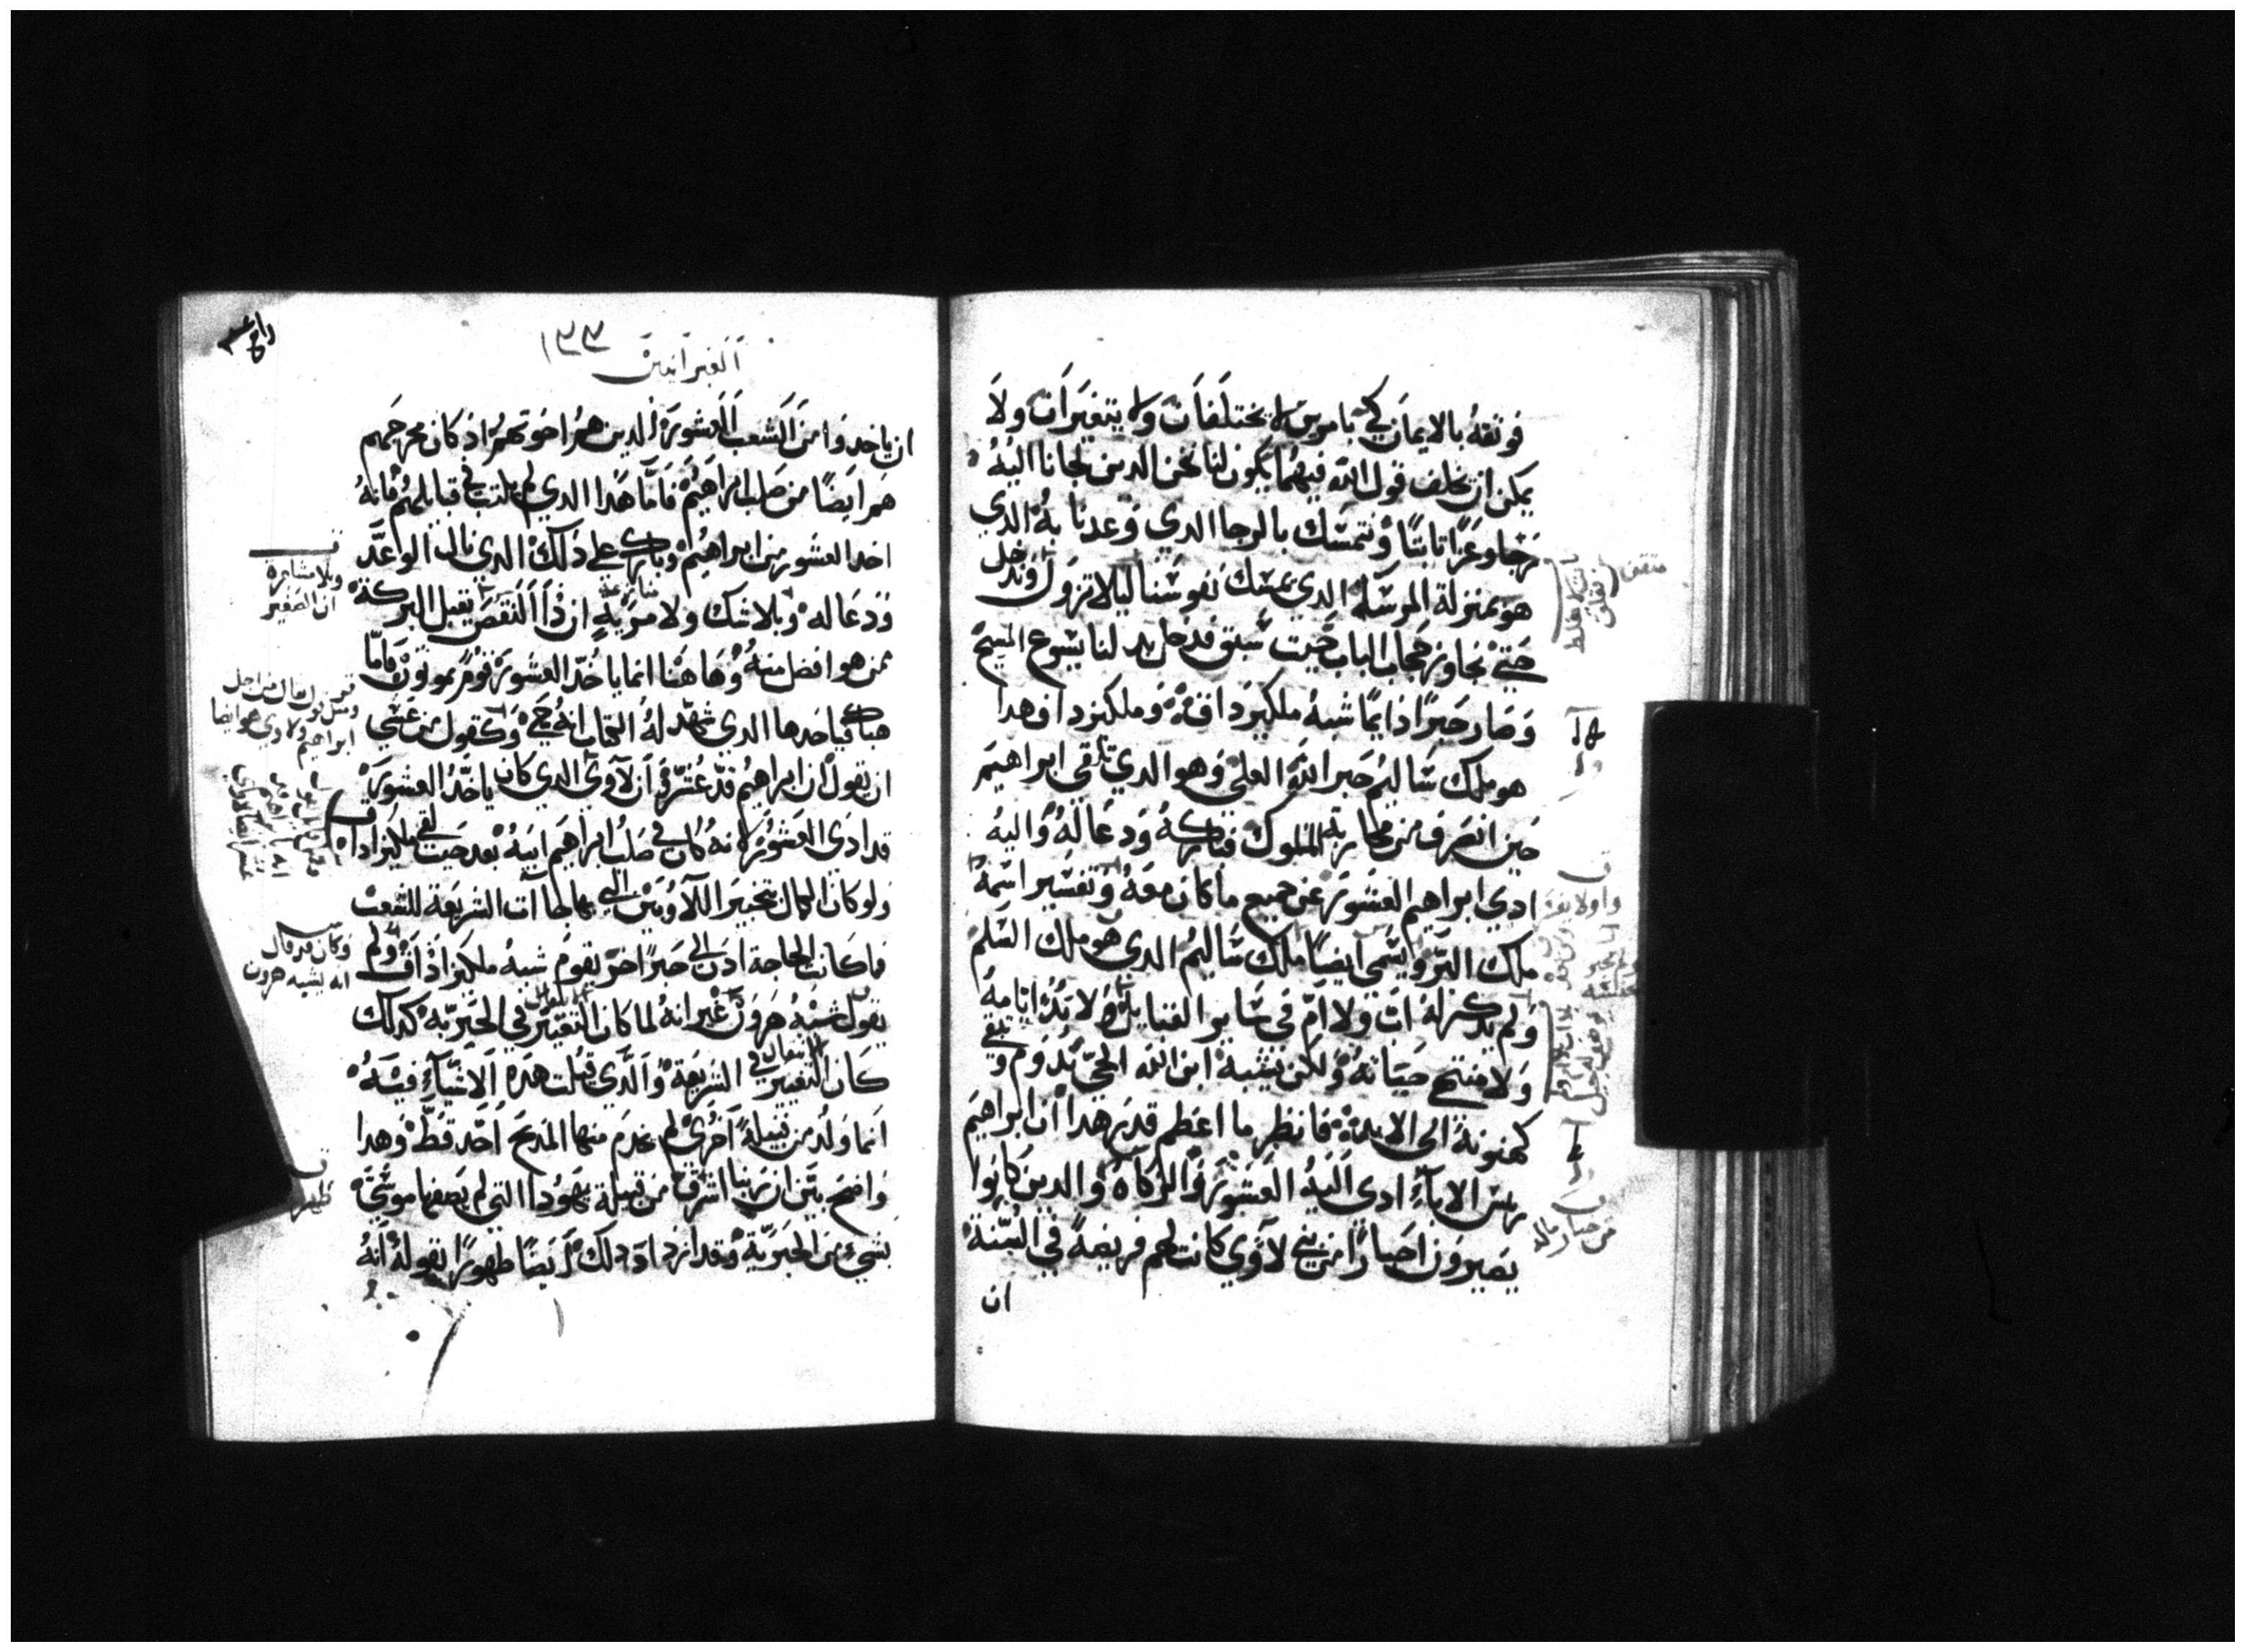 فوثقه بالايمان لكي بامرين لا يختلفان ولا يتغيران ولا
يمكن ان يخلف قول الله فيهما يكون لنا نحن الدين لجانا اليه
رجا وعزا ثابتا ونتمسك بالرجا الدي وعدنا به الدي
هو بمنزلة المرسله الدي يمسك نفوسنا ليلا تزول وندخل
حتي نجاوز حجاب الباب حيت سبق فدخل بدلنا يسوع المسيح
وصار حبرا دايما شبه ملكيزداق وملكيزداق هدا
هو ملك ساليم حبر الله العلي وهو الدي تلقي ابراهيم
حين انصرف من محاربة الملوك فباركه ودعا له واليه
ادي ابراهيم العشور عن جميع ما كان معه وتفسير اسمه
ملك البر ويسمي ايضا ملك ساليم الدي هو ملك السلم
ولم يدكر له اب ولا ام في ساير القبايل ولا بدء ايامه
ولا منتهي حياته ولكن بشبه ابن الله الحي تدوم وتبقي
كهنوته الي الابد فانظر ما اعظم قدر هدا ان ابراهيم
ريس الاباء ادي اليه العشور والزكاه والدين كانوا
يصيرون احبارا من بني لاوي كانت لهم فريضة في السنة
ان
العبرانيين
ان ياخدوا من الشعب العشور الدين هم اخوتهم اذ كان مخرجهم
هم ايضا من صلب ابراهيم فاما هدا الدي لم يكتب في قبايلهم فانه
اخد العشور من ابراهيم وبارك علي دلك الدي نال الوعد
ودعا له وبلا شك ولا مرية ان ذا النقص يقبل البركة
ممن هو افضل منه وهاهنا انما ياخد العشور قوم يموتون فاما
هناك فياخدها الدي شهد له الكتاب انه حي وكقول من عسي
ان يقول ان ابراهيم قد عشر فان لاوي الدي كان ياخد العشور
قد ادي العشور لانه كان في صلب ابراهيم ابيه بعد حيت لقي ملكيزاداق
ولو كان الكمال بتحبير اللاويين التي بها جاات الشريعة للشعب
ما كانت الحاجة ادن الي حبر اخر يقوم شبه ملكيزاداق ولم
يقول شبه هرون غير انه لما كان التغيير في الحبرية كدلك
كان التغيير في الشريعة والدي قيلت هده الاشياء فيه
انما ولد من قبيلة اخري لم يخدم منها المدبح احد قط وهدا
واضح بين ان ربنا اشرق من قبيلة يهودا التي لم يصفها موسي
بشي من الحبرية وقد ازداد دلك ايضا ظهورا بقوله انه
وبلا مشاجرة
ان الصغير
وكان قد قال
انه يشبه هرون